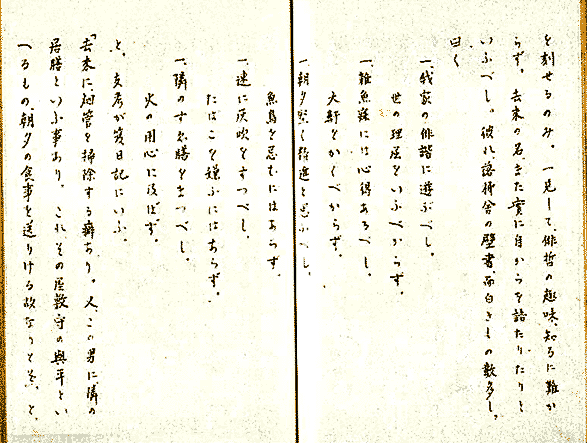 を刻せるのみ。一見して、俳哲の趣味、知るに難か
らず。去来の名、また實に自からを語たりたりと
いふべし。彼れ、落柿舎の壁書、面白きもの數多し。
曰く
一、我家の俳諧に遊ぶべし。
世の理屈をいふべからず。
一、雜魚寝には心得あるべし。
大鼾をかくべからず。
一、朝夕堅く精進を思ふべし。
魚鳥を忌むにはあらず。
一、速に灰吹をすつべし。
たばこを嫌ふにはあらず。
一、隣のすゑ膳をまつべし。
火の用心に及ばず。
と、支考が笈日記にいふ、
「去来に、烟管を掃除する癖あり。又、この男に隣の
居膳といふ事あり。これその屋敷守の與平とい
へるもの、朝夕の食事を送りける故なりとぞ」と、